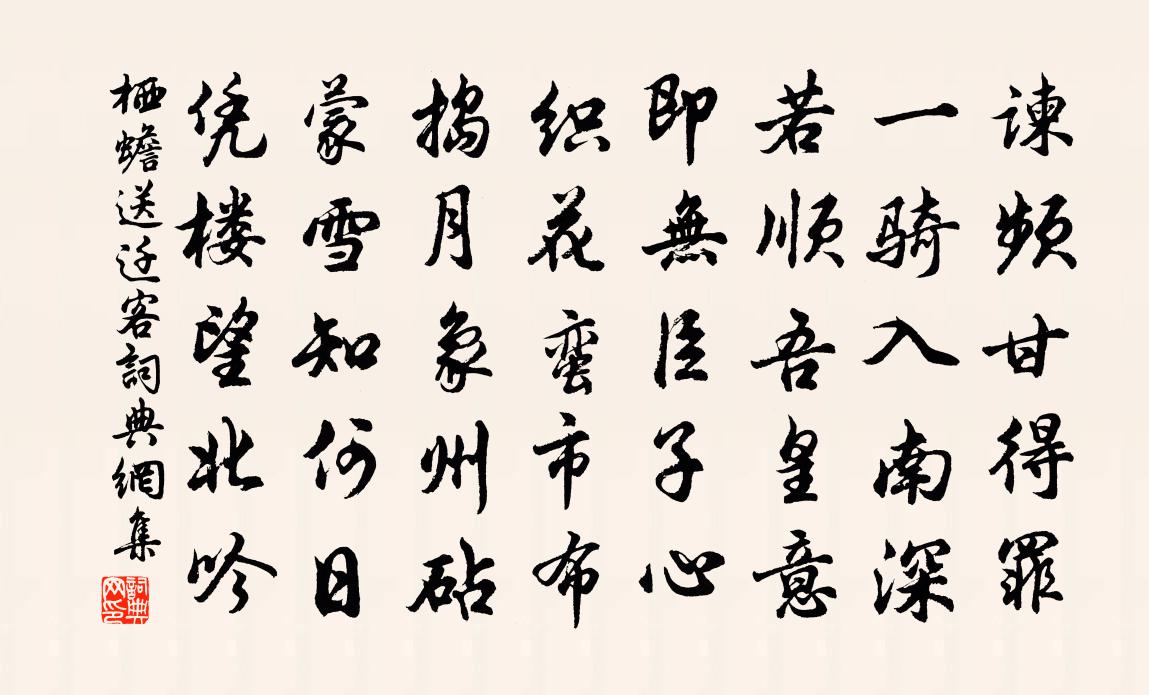 谏频甘得罪
一骑入南深
若顺吾皇意
即無臣子心
织花蛮市布
捣月象州砧
蒙雪知何日
凭楼望北吟
栖蟾送迁客詞典網集
詞典網印